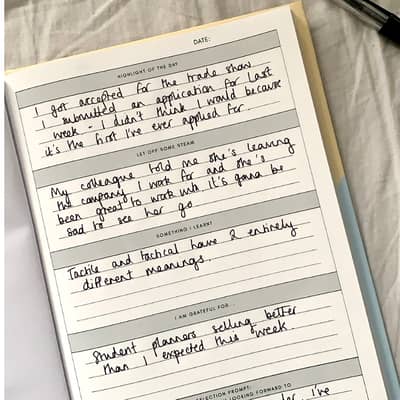 DATE:
HIGHLIGHT OF THE DAY
I got accepted for the trade show
I submitted an application for last
week - I didn't think I would because
it's the first I've ever applied for
LET OFF SOME STEAM
My colleague told me she's leaving
the company I work for and she's
been great to work with it's gonna be
sad to see her go
SOMETHING I LEARNT
Tactile and tactical have 2 entirely
different meanings.
I AM GRATEFUL FOR...
Student planners selling better
than I expected this week
REFLECTION PROMPT:
LOOKING FORWARD TO
I've